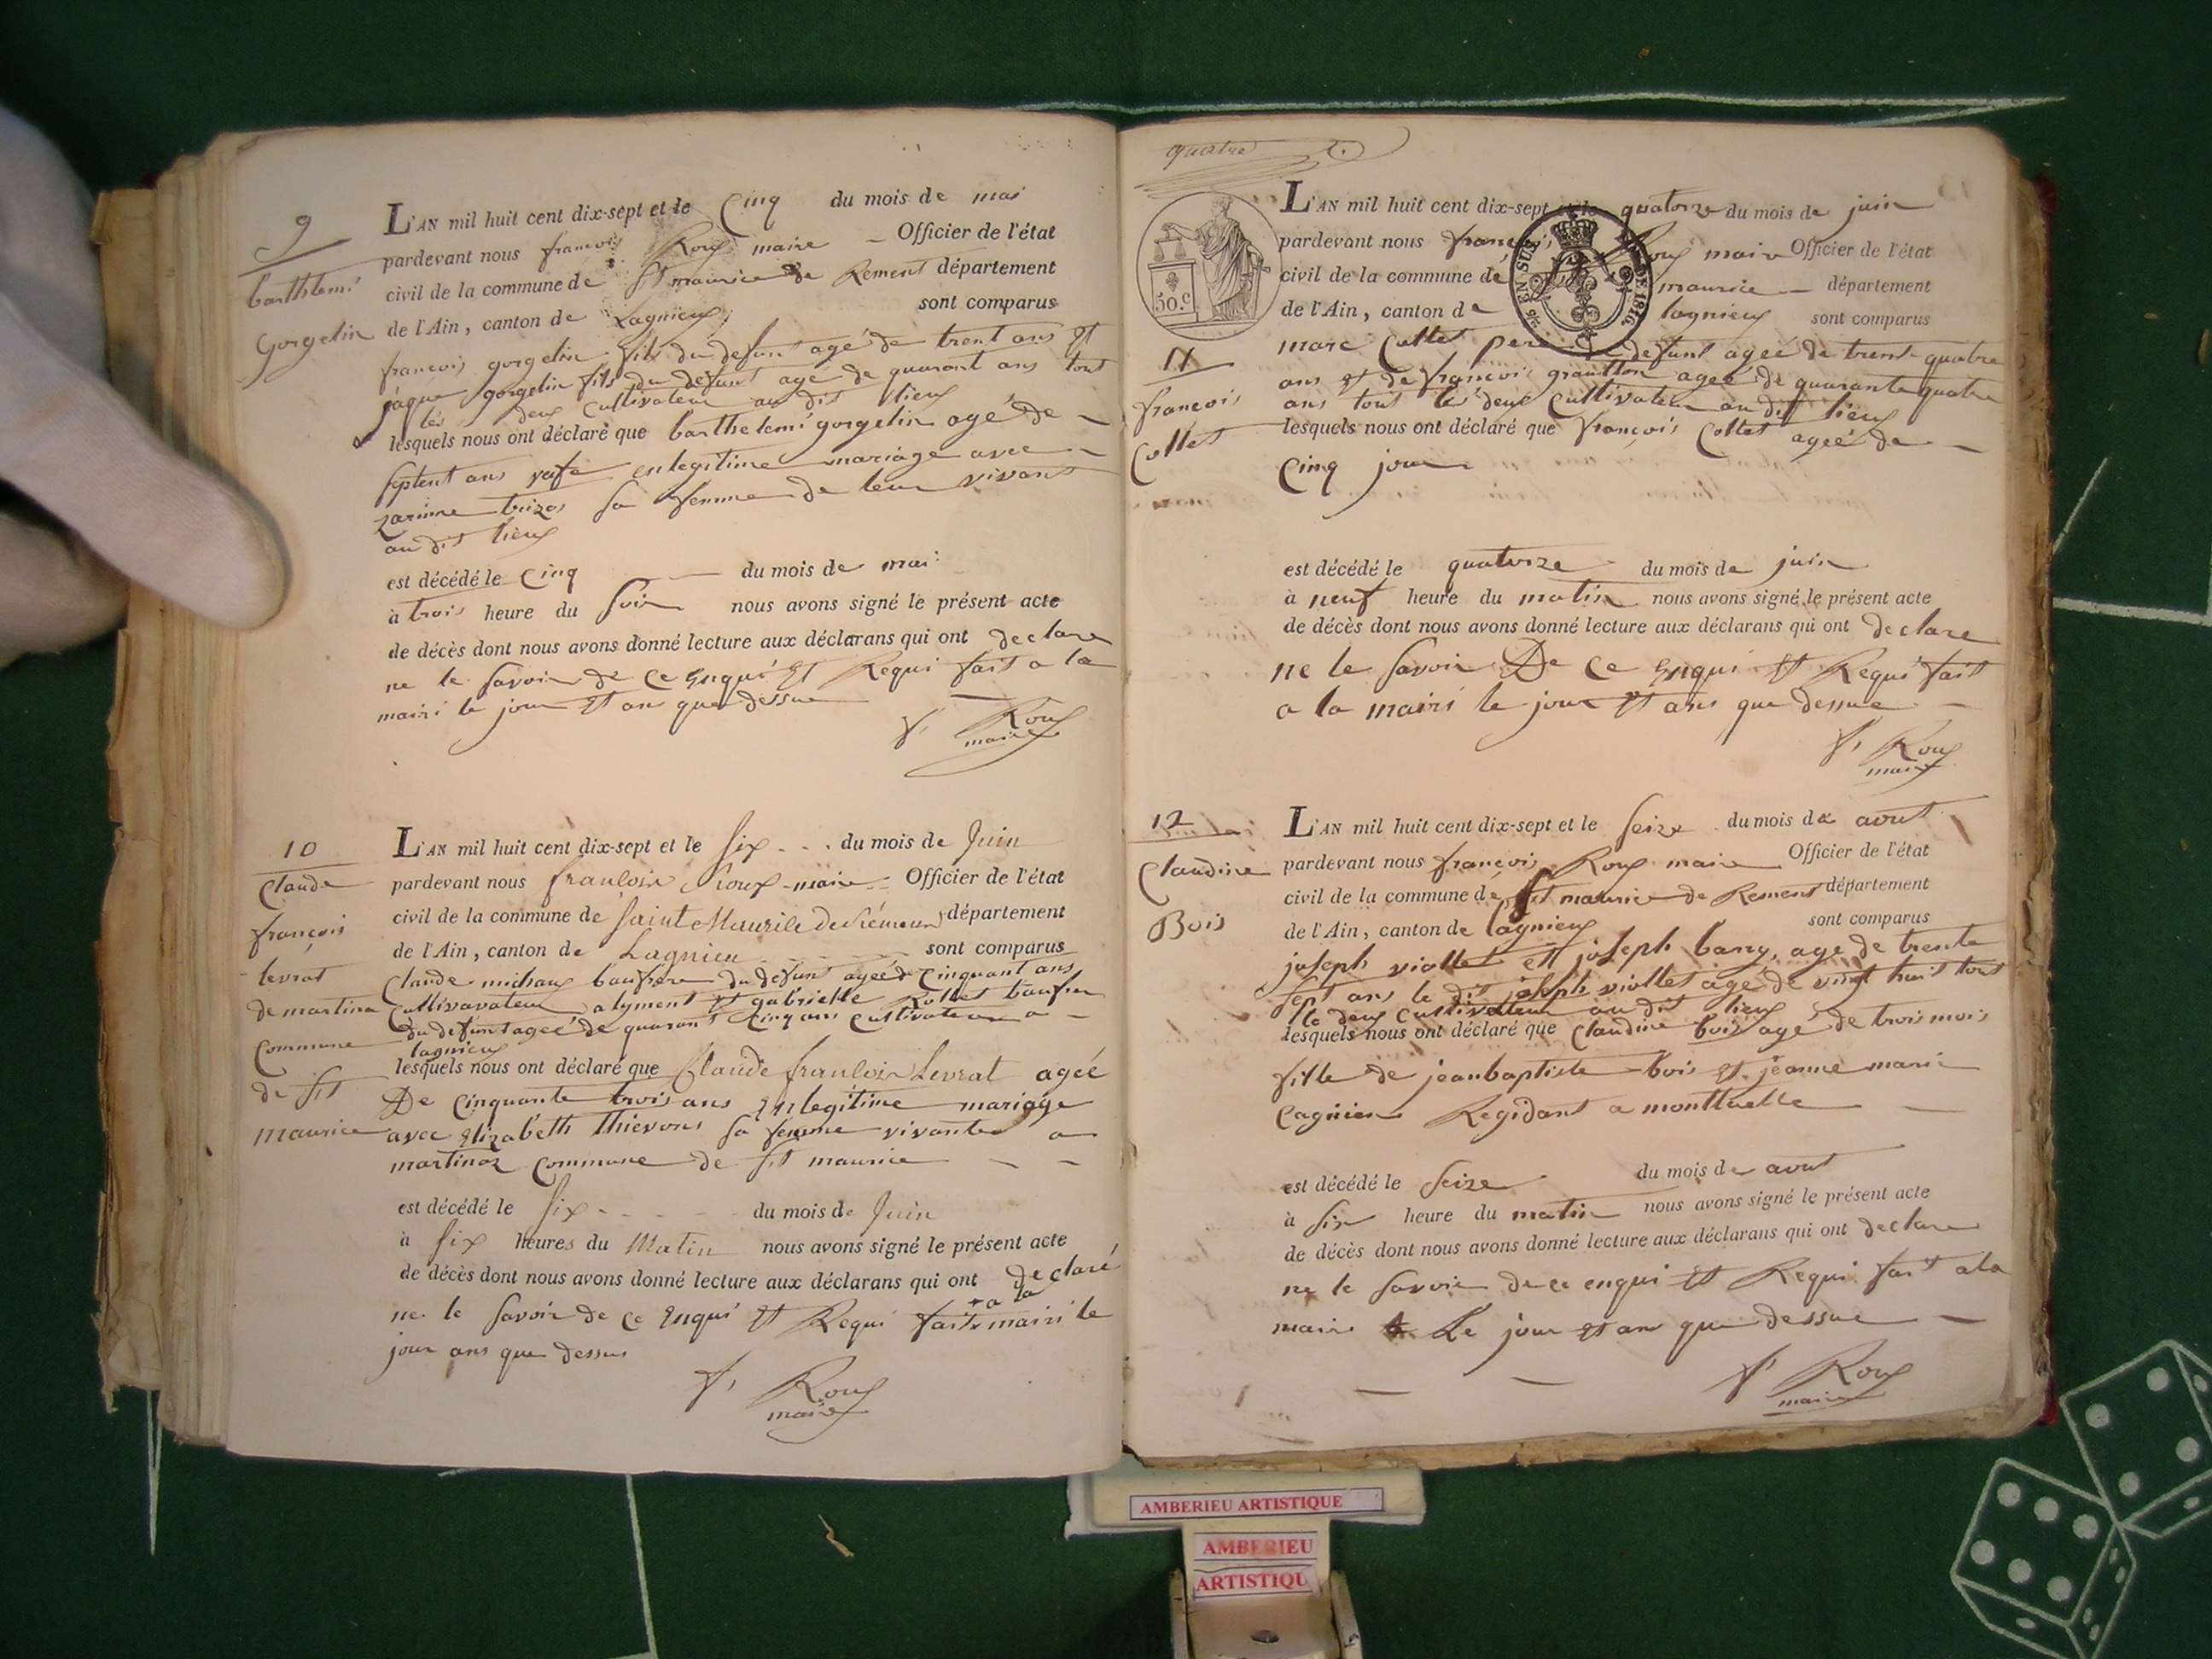 9
barthelemi
Gorgelin
L'AN mil huit cent dix-sept et le Cinq du mois de mai
pardevant nous francois Roux maire Officier de l'état
civil de la commune de St maurice de Remens département
de l'Ain, canton de Lagnieux sont comparus
francois gorgelin fils du defunt agé de trent ans Et
jaque gorgelin fils du defunt agé de quarant ans tout
les deux Cultivateur au dit lieux
lesquels nous ont déclaré que barthelemi gorgelin agé de
septent ans en legitime mariage avec
sa femme de leur vivant
au dit lieux
est décédé le Cinq du mois de mai
à trois heure du soir nous avons signé le présent acte
de décès dont nous avons donné lecture aux déclarans qui ont declare
ne le savoir de ce Enqui Et Requi fait a la
mairi le jour Et an que dessue
f. Roux
maire
10
Claude
françois
levrat
de martina
Commune
de St
maurice
L'AN mil huit cent dix-sept et le Six du mois de Juin
pardevant nous francois Roux maire Officier de l'état
civil de la commune de Saint Maurice de Rémens département
de l'Ain, canton de Lagnieu sont comparus
Claude michaux baufrere du defunt ageé de Cinquant ans
Cultivavateur a lyment Et gabrielle Rollet baufrer
du defunt ageé de quarant Cinq ans Cultivateur a
lagnieux
lesquels nous ont déclaré que Claude francois Levrat ageé
De Cinquante trois ans En legitime mariage
avec Elizabeth Thievons sa femme vivante a
martinaz Commune de St maurice
est décédé le Six du mois de Juin
à Six heures du Matin nous avons signé le présent acte
de décès dont nous avons donné lecture aux déclarans qui ont declaré
ne le savoir de ce Enqui Et Requi fait a la mairi le
jour ans que dessus
f. Roux
maire
quatre
50.c
EN SUS
DE 1816
11
françois
Collet
L'AN mil huit cent dix-sept et le quatorze du mois de juin
pardevant nous françois Roux maire Officier de l'état
civil de la commune de maurice département
de l'Ain, canton de lagnieux sont comparus
marc Collet pere defunt ageé de trent quatre
ans Et de françois ageé de quarante quatre
ans tout les deux Cultivateur au dit lieux
lesquels nous ont déclaré que françois Collet ageé de
Cinq jour
est décédé le quatorze du mois de juin
à neuf heure du matin nous avons signé le présent acte
de décès dont nous avons donné lecture aux déclarans qui ont declare
ne le savoir De Ce Enqui Et Requi fait
a la mairi le jour Et ans que dessue
f. Roux
maire
12
Claudine
Bois
L'AN mil huit cent dix-sept et le Seize du mois de avout
pardevant nous françois Roux maire Officier de l'état
civil de la commune de St maurice de Remens département
de l'Ain, canton de lagnieux sont comparus
joseph viollet Et joseph barry, age de trente
sept ans le dit joseph viollet agé de vingt huit tout
le deux Cultivateur au dit lieux
lesquels nous ont déclaré que Claudine bois agé de trois mois
fille de jeanbaptiste bois Et jeanne marie
Cagnien Regidant a montluelle
est décédé le Seize du mois de avout
à Six heure du matin nous avons signé le présent acte
de décès dont nous avons donné lecture aux déclarans qui ont declare
ne le savoir de ce enqui Et Requi fait ala
mairi Le jour Et an que dessue
f. Roux
maire
AMBERIEU ARTISTIQUE
AMBERIEU
ARTISTIQU